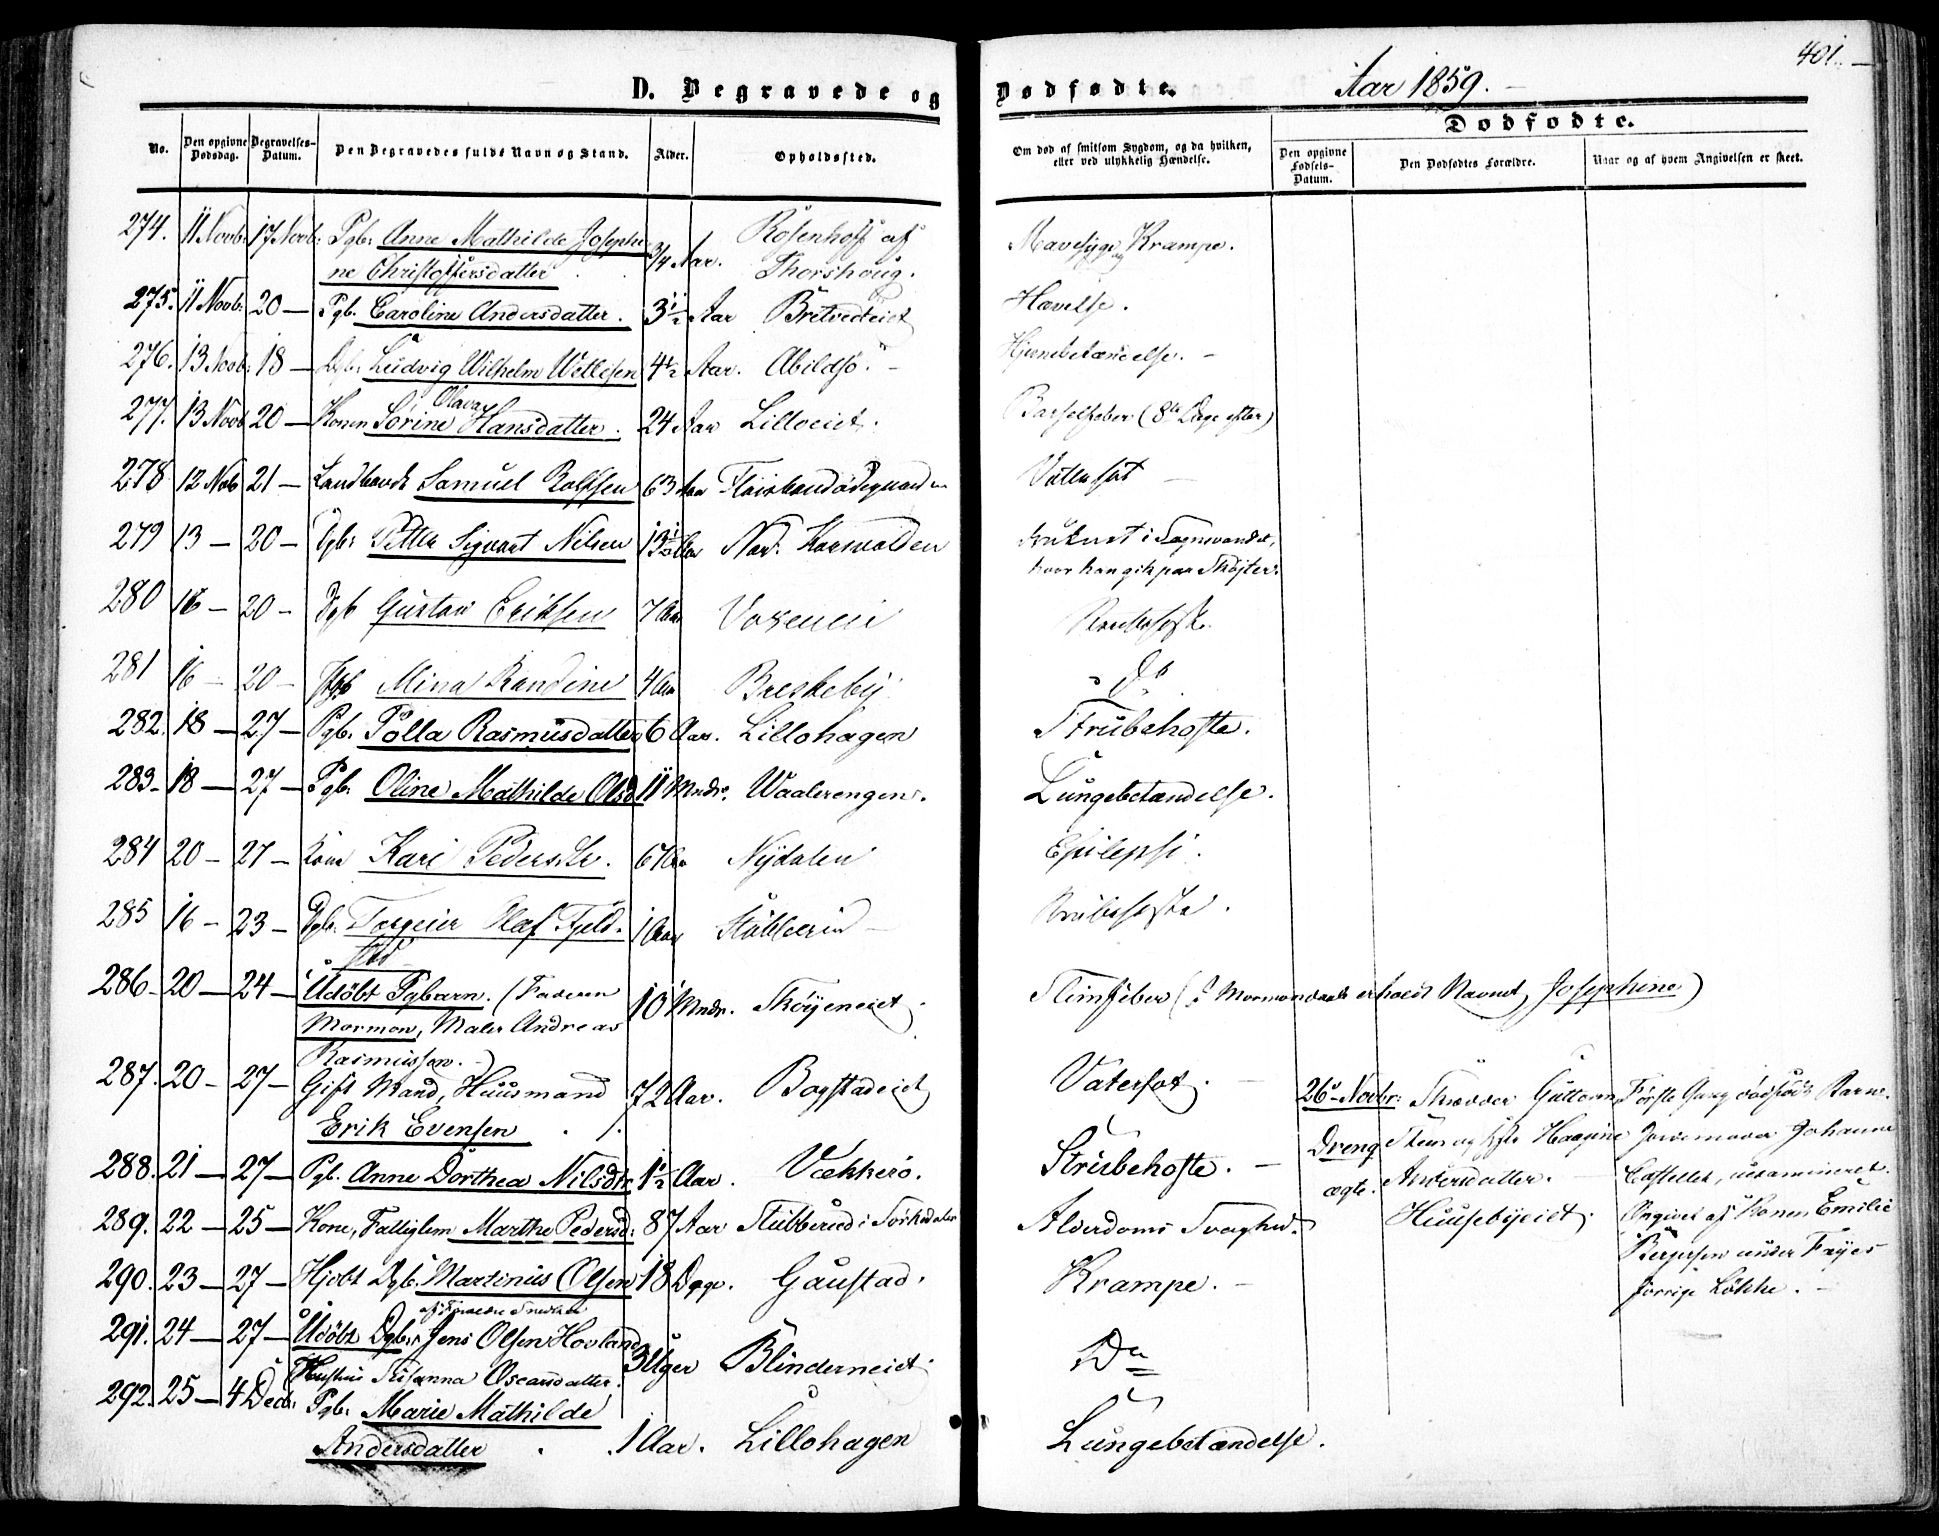 401.
D. Begravede og Dødfødte. Aar 1859.
Dødfødte.
No. Den opgivne Dødsdag. Begravelses-Datum. Den Begravedes fulde Navn og Stand. Alder. Opholdssted. Om død af smitsom Sygdom, og da hvilken, eller ved ulykkelig Hændelse. Den opgivne Fødsels-Datum. Den Dødfødtes Forældre. Naar og af hvem Angivelsen er skeet.
274. 11 Novb: 17 Novb: Pgb: Anne Mathilde Josephi- 3/4 Aar. Rosenhoff af Mavesyge og Krampe.
ne Christoffersdatter Thorshoug.
275. 11 Novb: 20 — Pgb. Caroline Andersdatter. 3 1/2 Aar Bretvedteiet Hævelse.
276. 13 Novb: 18 — Dgb: Ludvig Wilhelm Willesen 4 1/2 Aar. Abildsø. Hjernebetændelse. —
Olava
277. 13 Novb 20 — Konen Sørine Hansdatter. 24 Aar Lilloeiet. Barselfeber (8te Dage efter)
278 12 Nob 21 — Samuel Rolfsen 63 Aar Vattersot —
279 13 — 20 — Dgb: Petter Sigvart Nilsen 13 1/2 Aar Nor. Druknet i Sognsvandet,
hvor han gik paa Skøjter.
280 16 — 20 — Dgb Gustav Eriksen 7 Aar Voxeneie Strubehoste.
281 16 — 20 — Pgb Mina Randine 4 Aar Breskeby Do
282. 18 — 27 — Pgb. Polla Rasmusdatter 6 Aar. Lillohagen Strubehoste.
283 18 — 27 — Pgb. Oline Mathilde Olsd 11 Mndr. Waalerengen. Lungebetændelse.
284 20 — 27 — Kone Kari Pedersdtr. 67 Aar Nydalen Epilepsi.
285 16 — 23 — Dgb. Torgeier Olaf Fjeld- 1 Aar Stubberud — Strubehoste.
stad
286. 20 — 24 — Udøbt Pgbarn. (Faderen 10 Mndr. Skøyeneiet. Slimfeber (i Mormondaab erholdt Navnet Josephine)
Mormon, Maler Andreas
Rasmussen.)
287. 20 — 27 — Gift Mand, Huusmand 72 Aar. Bogstadeiet Vatersot. — 26 Novbr: Skrædder Guttorm Første Gang dødfødt Barn.
Erik Evensen. Dreng Steen og Haagine Jordemoder Johanne
288. 21 — 27 — Pgb. Anne Dorthea Nilsdtr 1 1/2 Aar. Vækkerø. Strubehoste. — ægte. Andersdatter. Castellet, uexamineret.
289. 22 — 25 — Kone, Fattiglem Marthe Pedersd: 87 Aar Stubberud i Sørkedalen Alderdoms Svaghed. Huusebyeiet. Angivet af Konen Emilie
Bergersen under Frøyes
290. 23 — 27 — Hjdbt Dgb. Martinus Olsen 18 Dage. Gaustad. Krampe. — forrige Løkke. —
291. 24 — 27 — Udøbt Dgb. Jens Olsen Hovland 3 Uger Blinderneiet. Do
Susanna Oscarsdatter.
292. 25 — 4 Decb: Pgb. Marie Mathilde
Andersdatter. 1 Aar. Lillohagen Lungebetændelse.